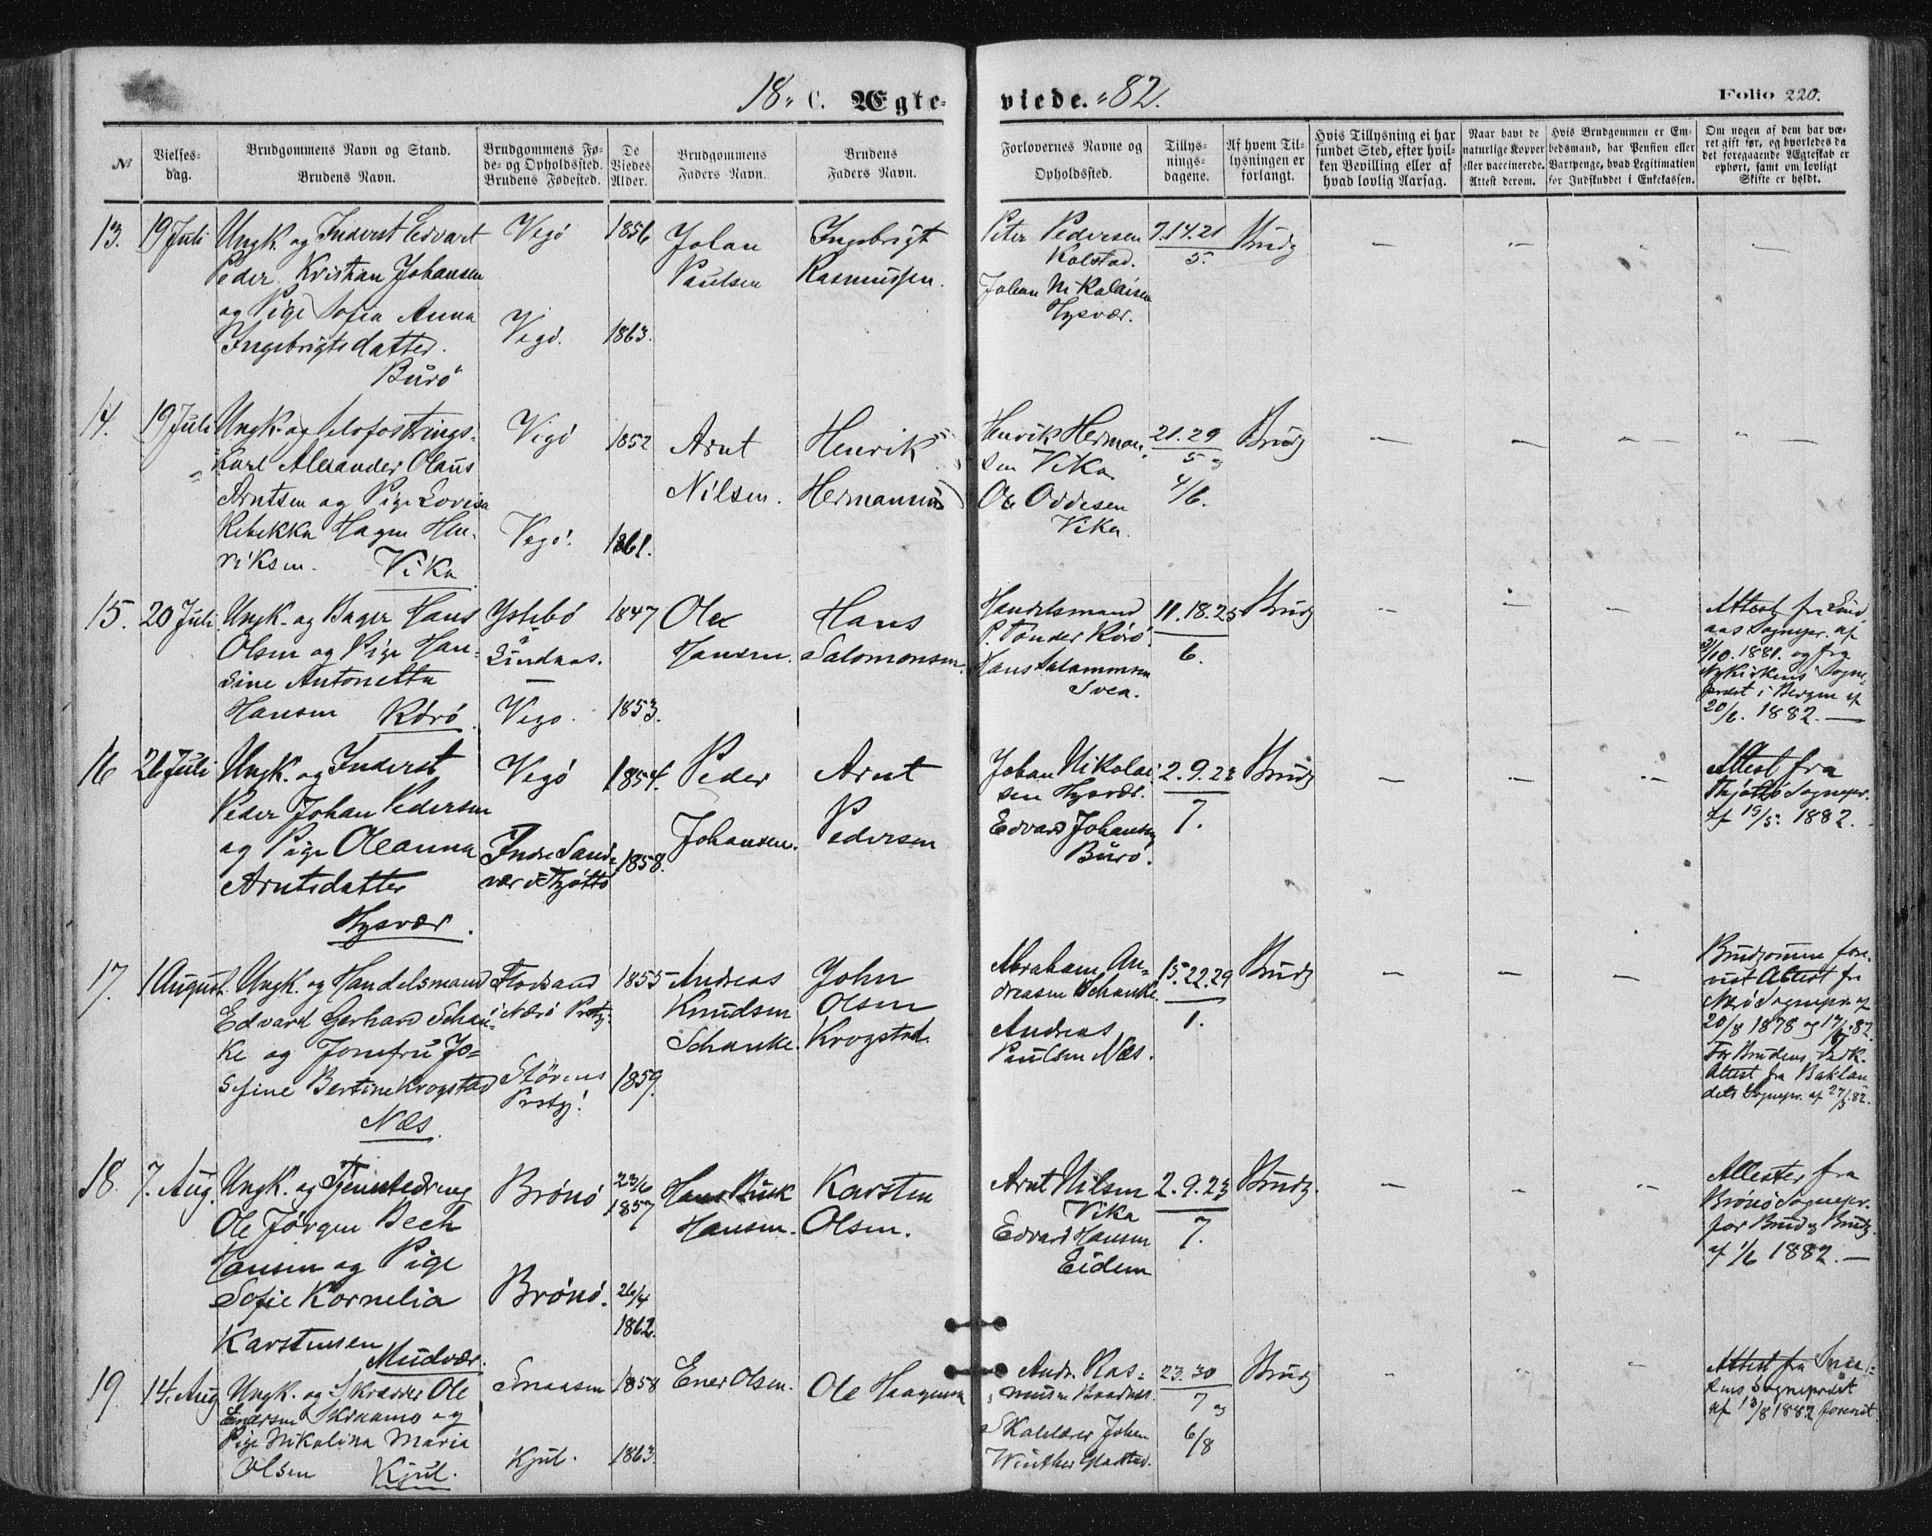 18" C. Ægteviede. "82.
Folio 220.
№
Vielses-
dag.
Brudgommens Navn og Stand.
Brudens Navn.
Brudgommens Fø-
de- og Opholdssted.
Brudens Fødested.
De
Viedes
Alder.
Brudgommens
Faders Navn.
Brudens
Faders Navn.
Forlovernes Navne og
Opholdsted.
Tillys-
nings-
dagene.
Af hvem Til-
lysningen er
forlangt.
Hvis Tillysning ei har
fundet Sted, efter hvil-
ken Bevilling eller af
hvad lovlig Aarsag.
Naar havt de
naturlige Kopper
eller vaccinerede.
Attest derom.
Hvis Brudgommen er Em-
bedsmand, har Pension eller
Vartpenge, hvad Legitimation
for Indskuddet i Enkekassen.
Om nogen af dem har væ-
ret gift før, og hvorledes da
det foregaaende Ægteskab er
ophørt, samt om lovligt
Skifte er holdt.
13. 19 Juli
Ungk. og Inderst Edvart
Peder Kristian Johansen
og Pige Sofia Anna
Ingebrigtsdatter.
Burö
Vegö
Vegö.
1856
1863.
Johan
Paulsen
Ingebrigt
Rasmussen.
Peter Pedersen
Rolstad.
Johan Nikolaisen
Hysvær.
7.14.21
5.
Brudg
14. 19 Juli
Ungk. og
Karl Alexander Olaus
Arntsen og Pige Lovisa
Rebekka Hagen Hen-
riksen. Vika
Vegö
Vegö.
1852
1861.
Arnt
Nilsen.
Henrik
Hermansen
Henrik Herman-
sen Vika
Ole Oddesen
Vika.
21.29
5 og
4/6.
Brudg
15. 20 Juli.
Ungk. og Bager Hans
Olsen og Pige Han-
sine Antonetta
Hansen Rörö.
Ystebö
Lindaas.
Vegö.
1847
1853.
Ole
Hansen.
Hans
Salomonsen.
Handelsmand
P. Tönder Rörö.
Hans Salamonsen
Svea.
11.18.25
6.
Brudg
Attest fra Lind-
aas Sognepr. af
3/10. 1881. og fra
Nykirkens Sogne-
præst i Bergen af
20/6. 1882.
16 26 Juli
Ungk. og Inderst
Peder Johan Pedersen
og Pige Oleanna
Arntsdatter
Hysvær.
Vegö
Indre Sand-
vær i Tjøttö
1854.
1858.
Peder
Johansen.
Arnt
Pedersen
Johan Nikolai-
sen Hysvær.
Edvard Johansen
Burö.
2.9.23
7.
Brudg
Attest fra
Thjøttö Sognepr.
af 15/5. 1882.
17. 1 August.
Ungk. og Handelsmand
Edvard Gerhard Schan-
ke og Jomfru Jo-
sefine Bertine Krogstad
Næs.
Flosand
i Nærö Prstgj.
Störens
Prstgj.
1855
1859.
Andreas
Knudsen
Schanke.
John
Olsen
Krogstad.
Abraham An-
dreasen Schanke.
Andreas
Paulsen Næs.
15.22.29
1.
Brudg
Brudgomme fore-
vist Attest fra
Nærö Sognepr. af
20/8 1878 og 17/ 82.
For Bruden
Attest fra Baklan-
dets Sognepr. af 27/5 82.
18. 7. Aug.
Ungk. og Tjenstedreng
Ole Jörgen Bech
Hansen og Pige
Sofie Kornelia
Karstensen
Mudvær.
Brönö
Brönö.
23/6
1857
26/4
1862.
Hans
Hansen.
Karsten
Olsen.
Arnt Nilsen
Vika
Edvard Hansen
Eidem
2.9.23
7.
Brudg.
Attester fra
Brönö Sognepr.
for Brud og Brudg.
af 1/6 1882.
19. 14. Aug
Ungk. og Skrædder Ole
Einersen Skraamo og
Pige Nikolina Maria
Olsen Kjul.
Snaasen
Kjul.
1858
1863.
Ener Olsen.
Ole Haagensen
Andr. Ras-
musen
Johan
Winther
23.30
7 og
6/8
Brudg
Attest fra Snaa-
sens Sognepræst
af 13/8 1882 forevist.